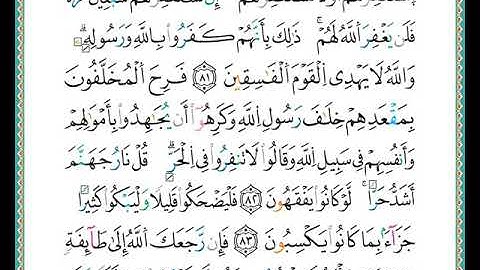 فَلَن يَغْفِرَ ٱللَّهُ لَهُمْ ۚ ذَٰلِكَ بِأَنَّهُمْ كَفَرُوا۟ بِٱللَّهِ وَرَسُولِهِۦ ۗ
وَٱللَّهُ لَا يَهْدِى ٱلْقَوْمَ ٱلْفَٰسِقِينَ ٨١ فَرِحَ ٱلْمُخَلَّفُونَ
بِمَقْعَدِهِمْ خِلَٰفَ رَسُولِ ٱللَّهِ وَكَرِهُوٓا۟ أَن يُجَٰهِدُوا۟ بِأَمْوَٰلِهِمْ
وَأَنفُسِهِمْ فِى سَبِيلِ ٱللَّهِ وَقَالُوا۟ لَا تَنفِرُوا۟ فِى ٱلْحَرِّ ۗ قُلْ نَارُ جَهَنَّمَ
أَشَدُّ حَرًّا ۚ لَّوْ كَانُوا۟ يَفْقَهُونَ ٨٢ فَلْيَضْحَكُوا۟ قَلِيلًا وَلْيَبْكُوا۟ كَثِيرًا
جَزَآءًۢ بِمَا كَانُوا۟ يَكْسِبُونَ ٨٣ فَإِن رَّجَعَكَ ٱللَّهُ إِلَىٰ طَآئِفَةٍ